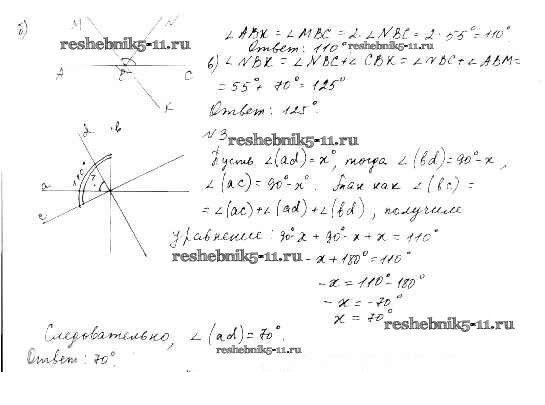 б)
M N
A B C
K
∠ABK = ∠MBC = 2·∠NBC = 2·55° = 110°
Ответ: 110°
reshebnik5-11.ru
reshebnik5-11.ru
в) ∠NBK = ∠NBC + ∠CBK = ∠NBC + ∠ABM =
= 55° + 70° = 125°
Ответ: 125°.
N3
reshebnik5-11.ru
d b
110°
?
a
c
Пусть ∠(ad) = x°, тогда ∠(bd) = 90° - x,
∠(ac) = 90° - x°. Так как ∠(bc) =
= ∠(ac) + ∠(ad) + ∠(bd), получим
уравнение: 90° - x + 90° - x + x = 110°
reshebnik5-11.ru
-x + 180° = 110°
-x = 110° - 180°
-x = -70°
x = 70°
reshebnik5-11.ru
Следовательно, ∠(ad) = 70°.
reshebnik5-11.ru
Ответ: 70°.